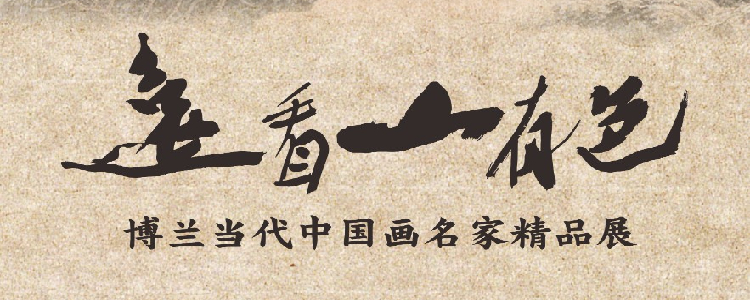 遠看山有色
博兰当代中国画名家精品展